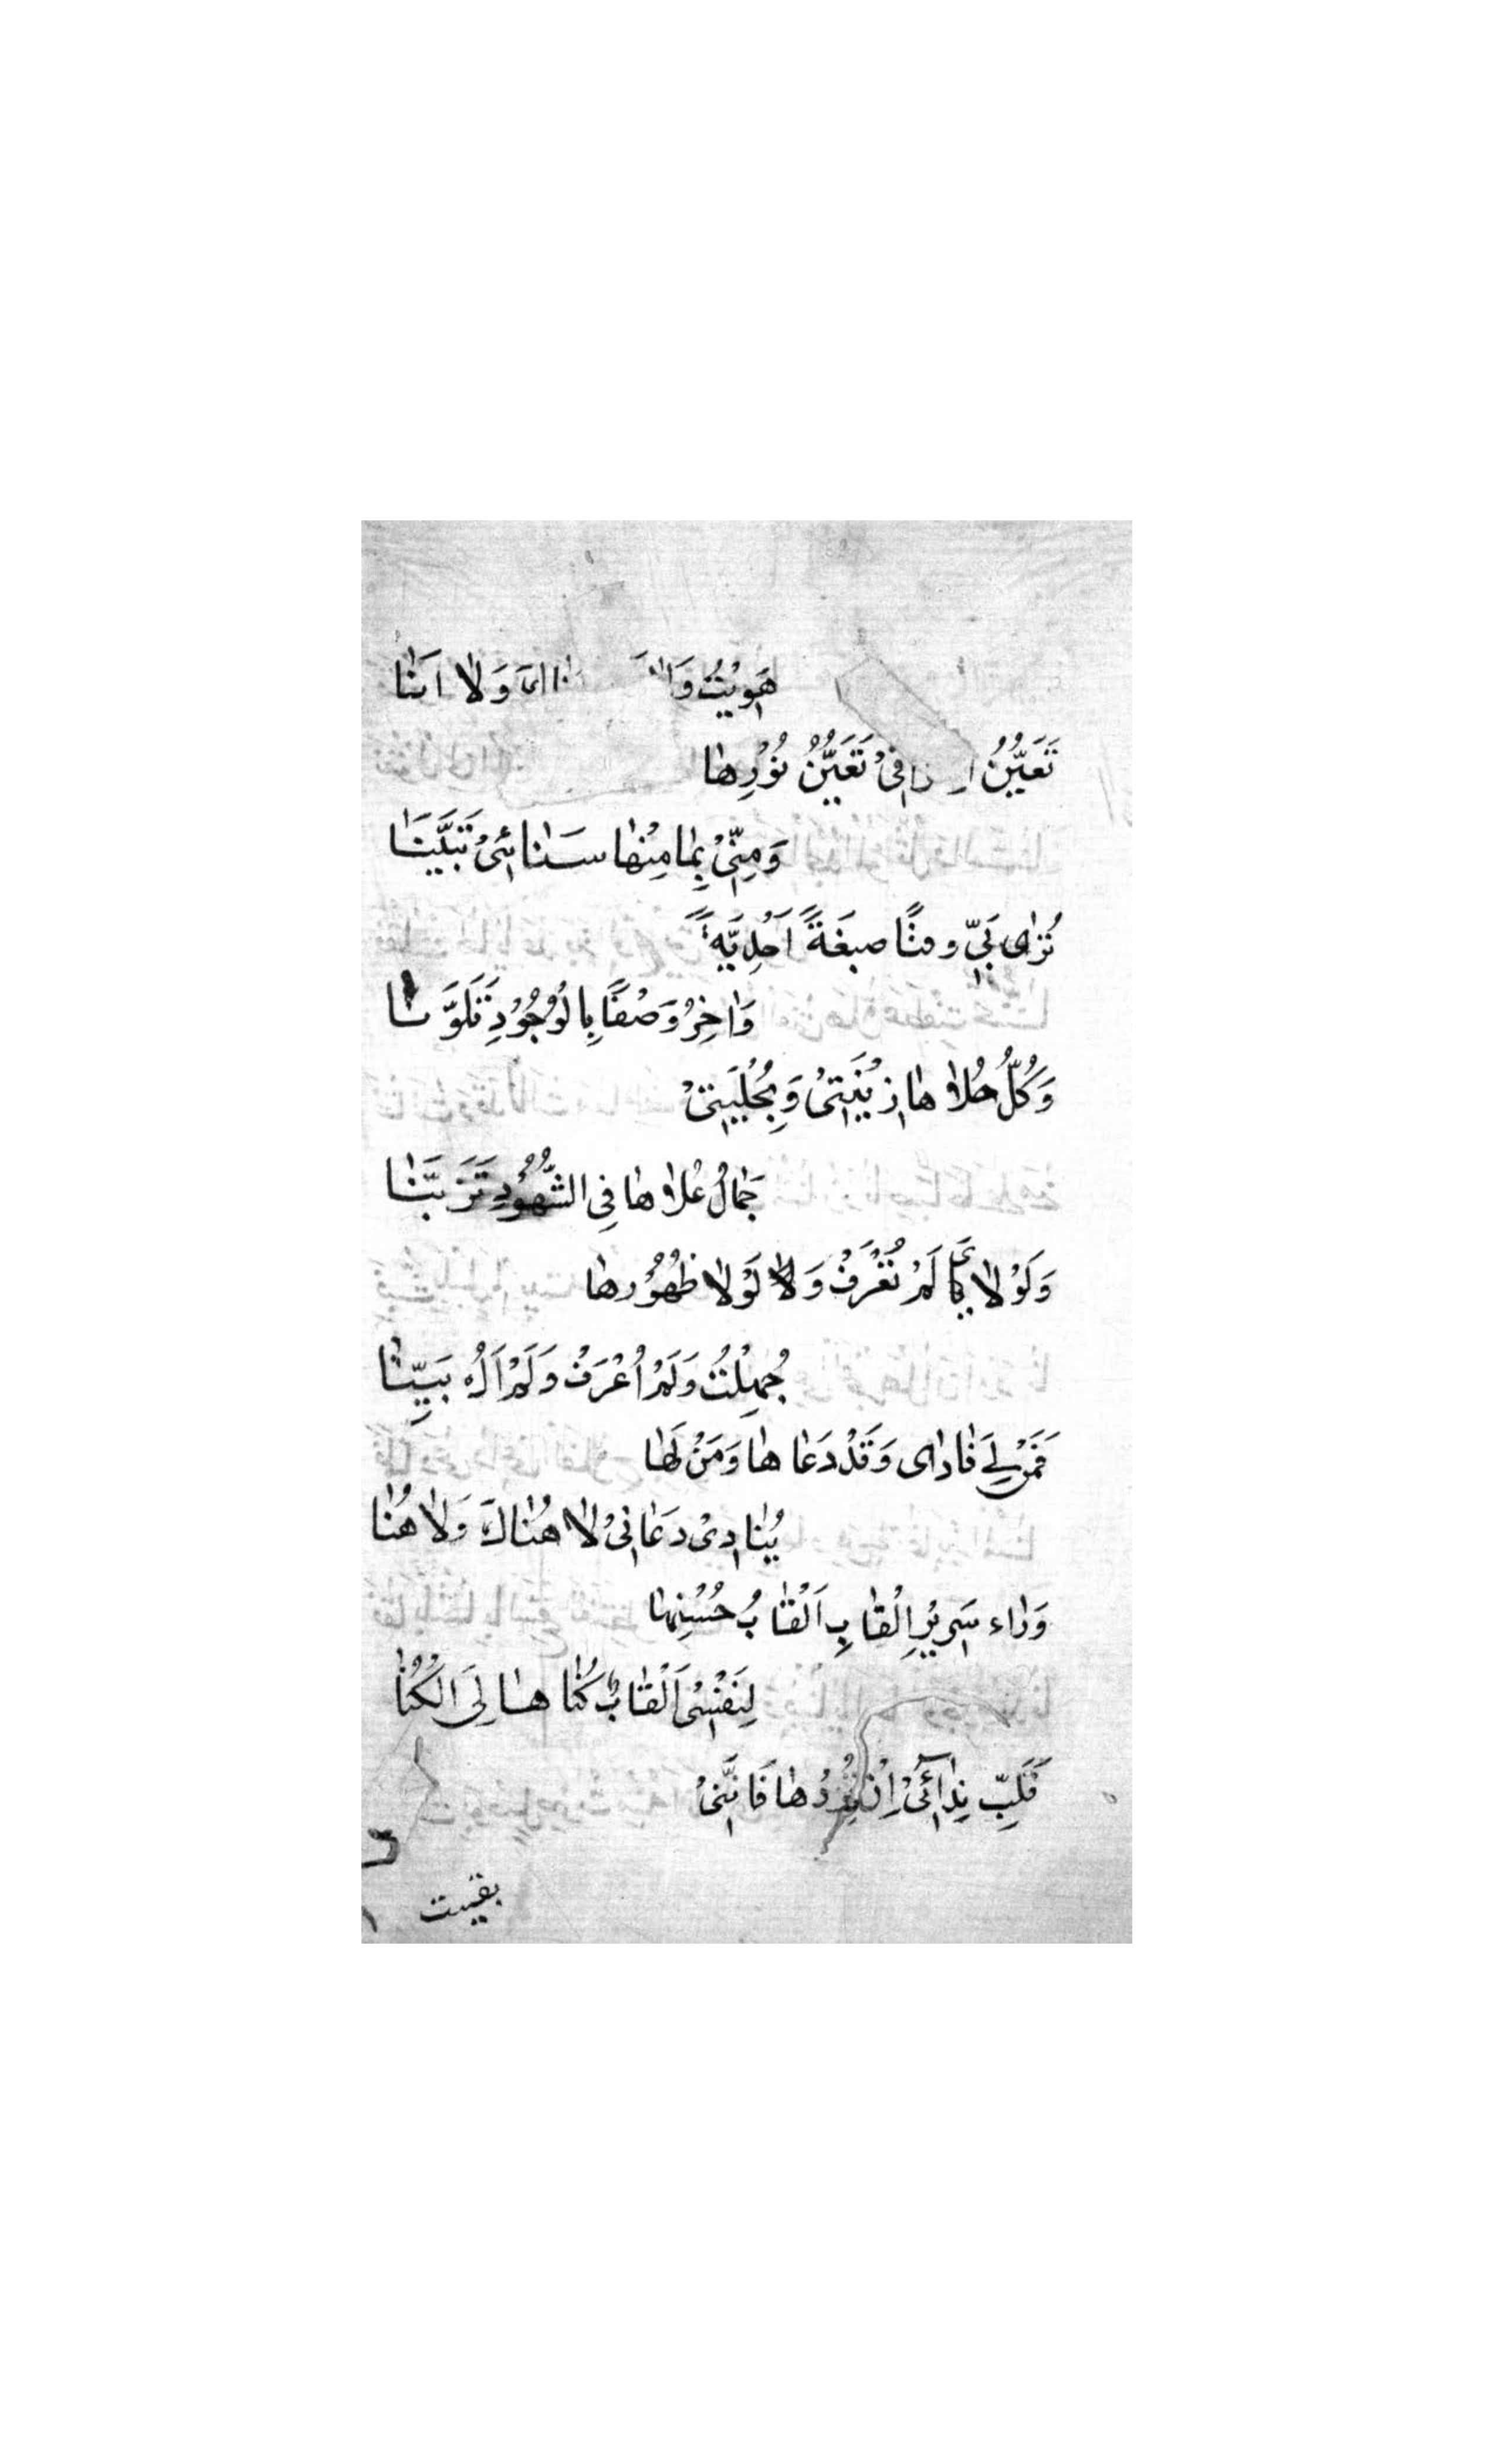 هَوِيْتُ وَلَا اَنَا
تَعَيُّنُ فِىْ تَعَيُّنُ نُوْرِهَا
وَمِنِّىْ بِمَا مِنْهَا سَنَائِىْ تَبَيَّنَا
تُرٰاى بَىّ ومنًّا صبغَةً اَحَدِيَّةً
وَاٰخِرُ وَصْفًا بِالْوُجُوْدِ تَلَوَّنَا
وَكُلُّ حُلَاهَا زِيْنَتِىْ وَبِحُلْيَتِىْ
جَمَالُ عُلَاهَا فِى الشُّهُوْدِ تَزَيَّنَا
وَلَوْلَاىَ لَمْ تُعْرَفْ وَلَا لَوْلَا ظُهُوْرُهَا
جُهِلْتُ وَلَمْ اُعْرَفْ وَلَمْ اَكُ بَيِّنَا
فَمَنْ لِىَ نَادٰاى وَقَدْ دَعَاهَا وَمَنْ لَهَا
يُنَادِىْ دَعَانِىْ لَا هُنَاكَ وَلَا هُنَا
وَرَاء سَرِيْرِ الْقَابِ اَلْقَابُ حُسْنِهَا
لِنَفْسِىْ اَلْقَابٌ كُنَاهَا لِىَ الْكُنَا
فَلَبِّ نِدَائِىْ اِنْ هَا فَاِنَّنِىْ
بقيت